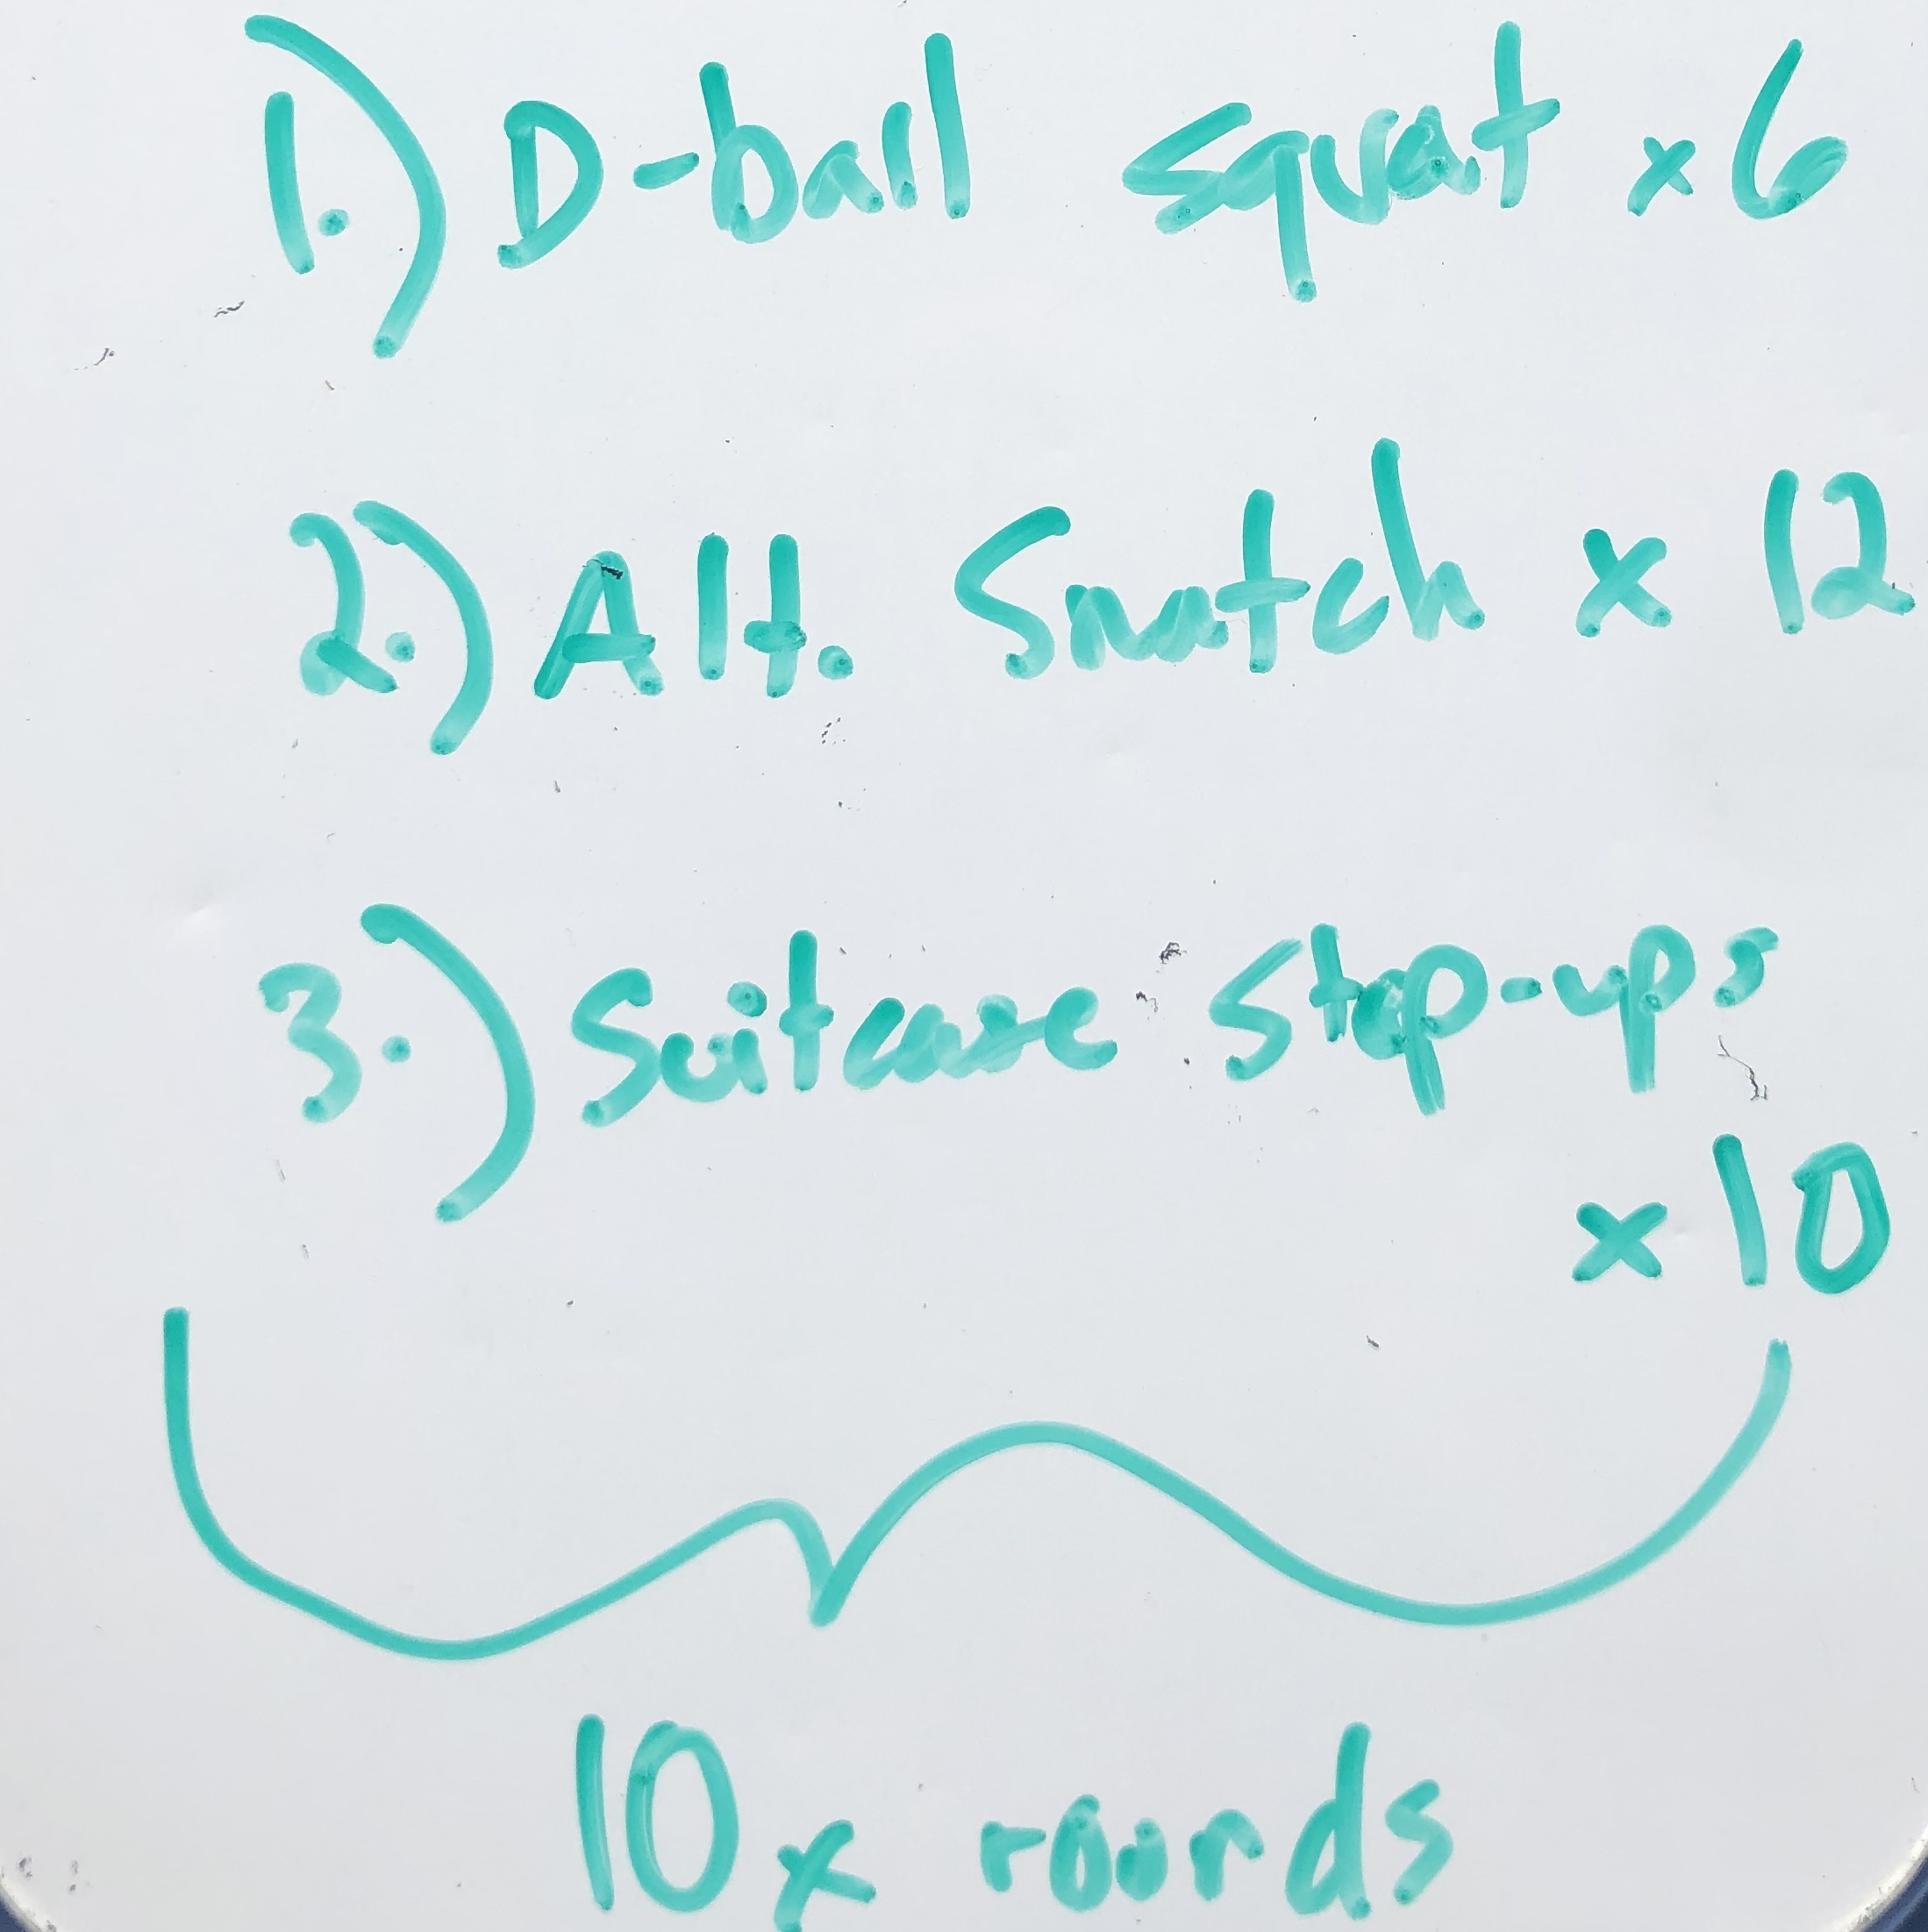 1.) D-ball squat x 6
2.) Alt. Snatch x 12
3.) Suitcase Step-ups
x 10
10x rounds